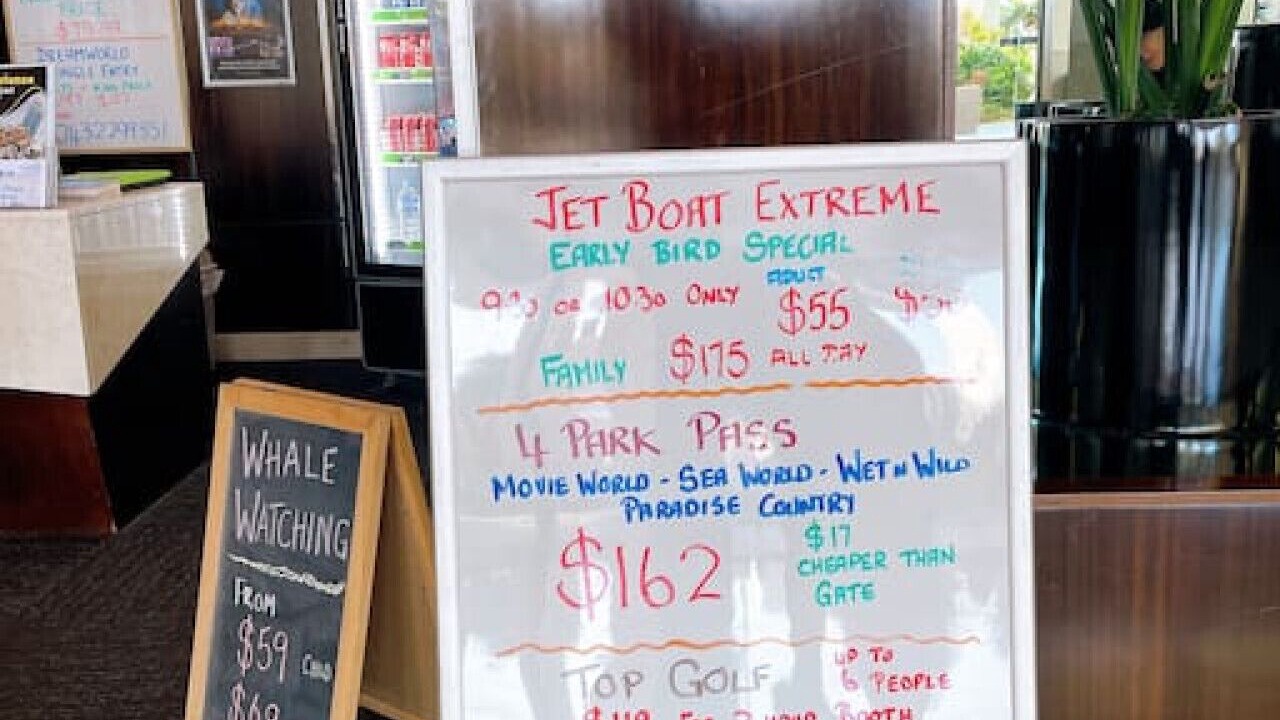 DREAMWORLD
JET BOAT EXTREME
EARLY BIRD SPECIAL
ADULT
9:30 OR 10:30 ONLY $55
FAMILY $175 ALL DAY
4 PARK PASS
MOVIE WORLD - SEA WORLD - WET N WILD
PARADISE COUNTRY
$162
$17
CHEAPER THAN
GATE
TOP GOLF
UP TO
6 PEOPLE
BOOTH
WHALE
WATCHING
FROM
$59 CHILD